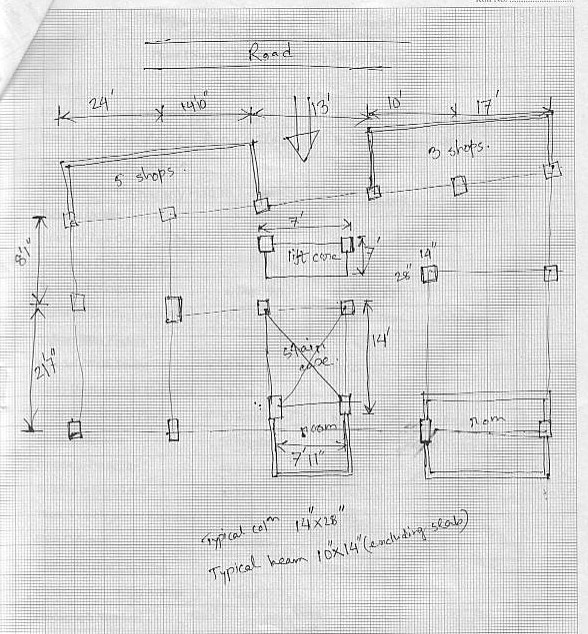 Road
24' 14'10" 13' 10' 17'
5 shops.
3 shops.
7'
lift core
7'
8'1"
14"
28"
stair
case.
14'
21'7"
room
room
7'11"
Typical colmn 14"x28"
Typical beam 10"x14" (excluding slab)